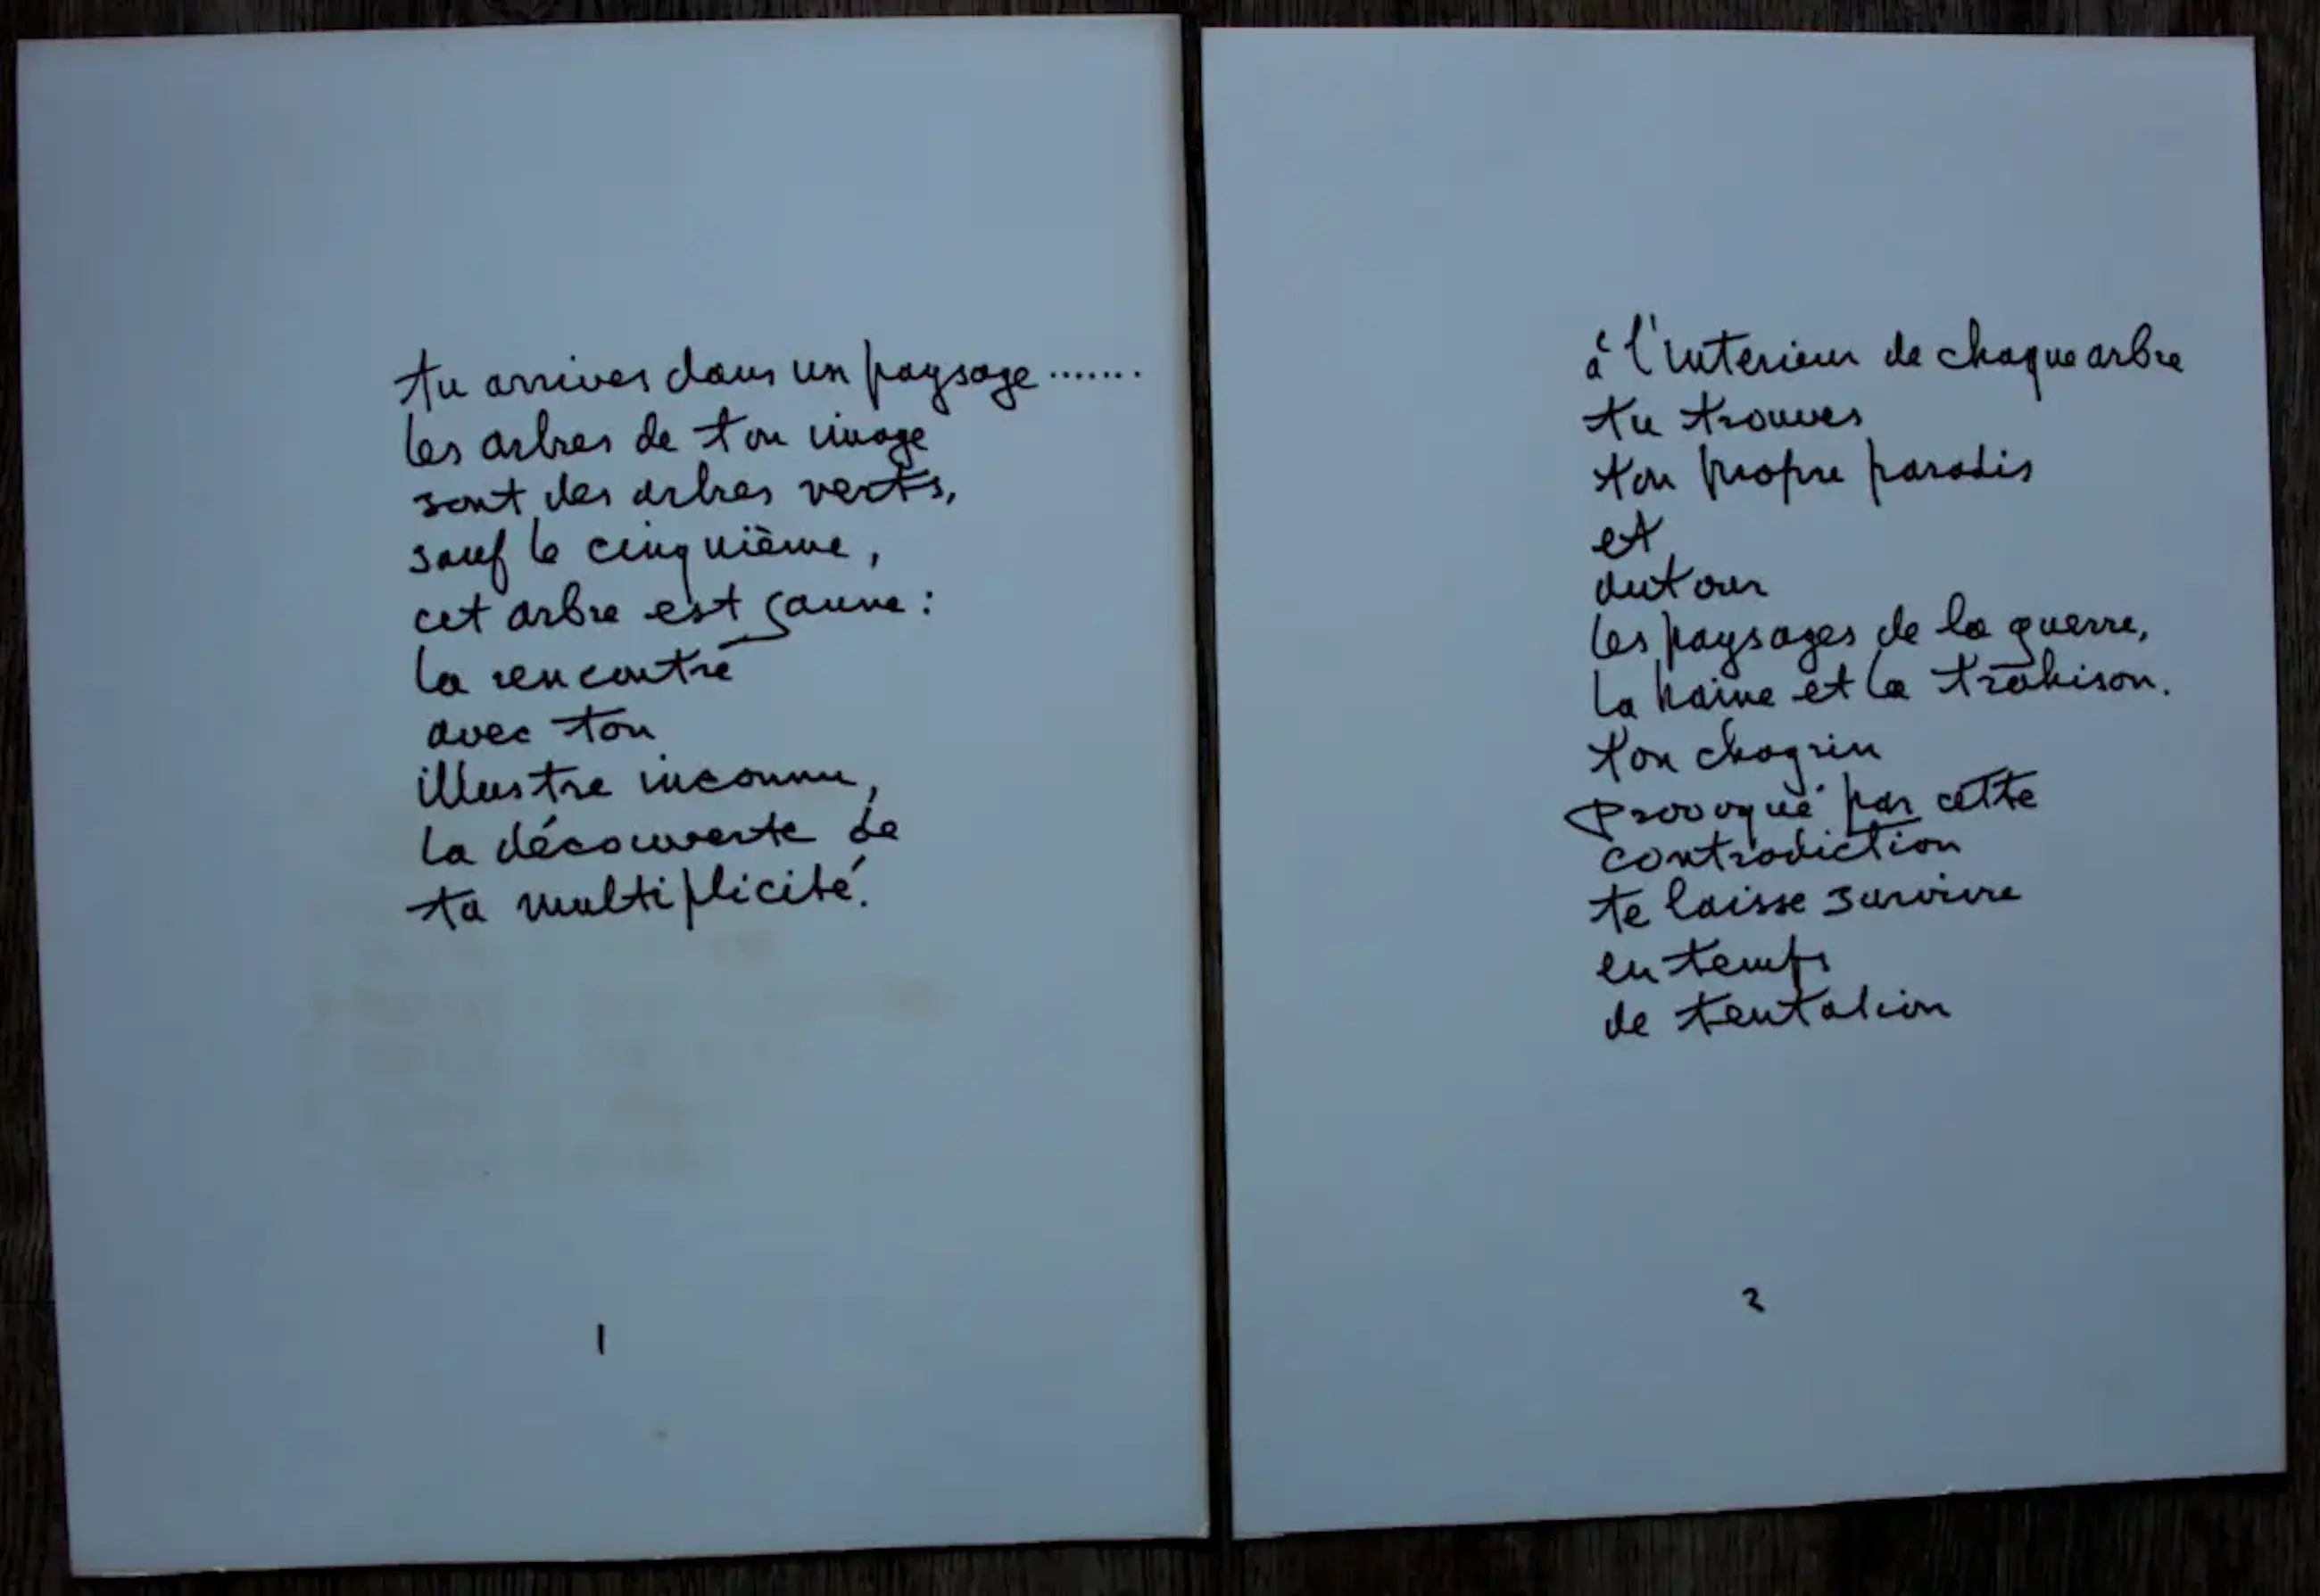 tu arrives dans un paysage .......
les arbres de ton image
sont des arbres verts,
sauf le cinquième,
cet arbre est jaune :
la rencontre
avec ton
illustre inconnu,
la découverte de
ta multiplicité.
1
à l'interieur de chaque arbre
tu trouves
ton propre paradis
et
autour
les paysages de la guerre,
la haine et la trahison.
ton chagrin
provoqué par cette
contradiction
te laisse survivre
en temps
de tentation
2